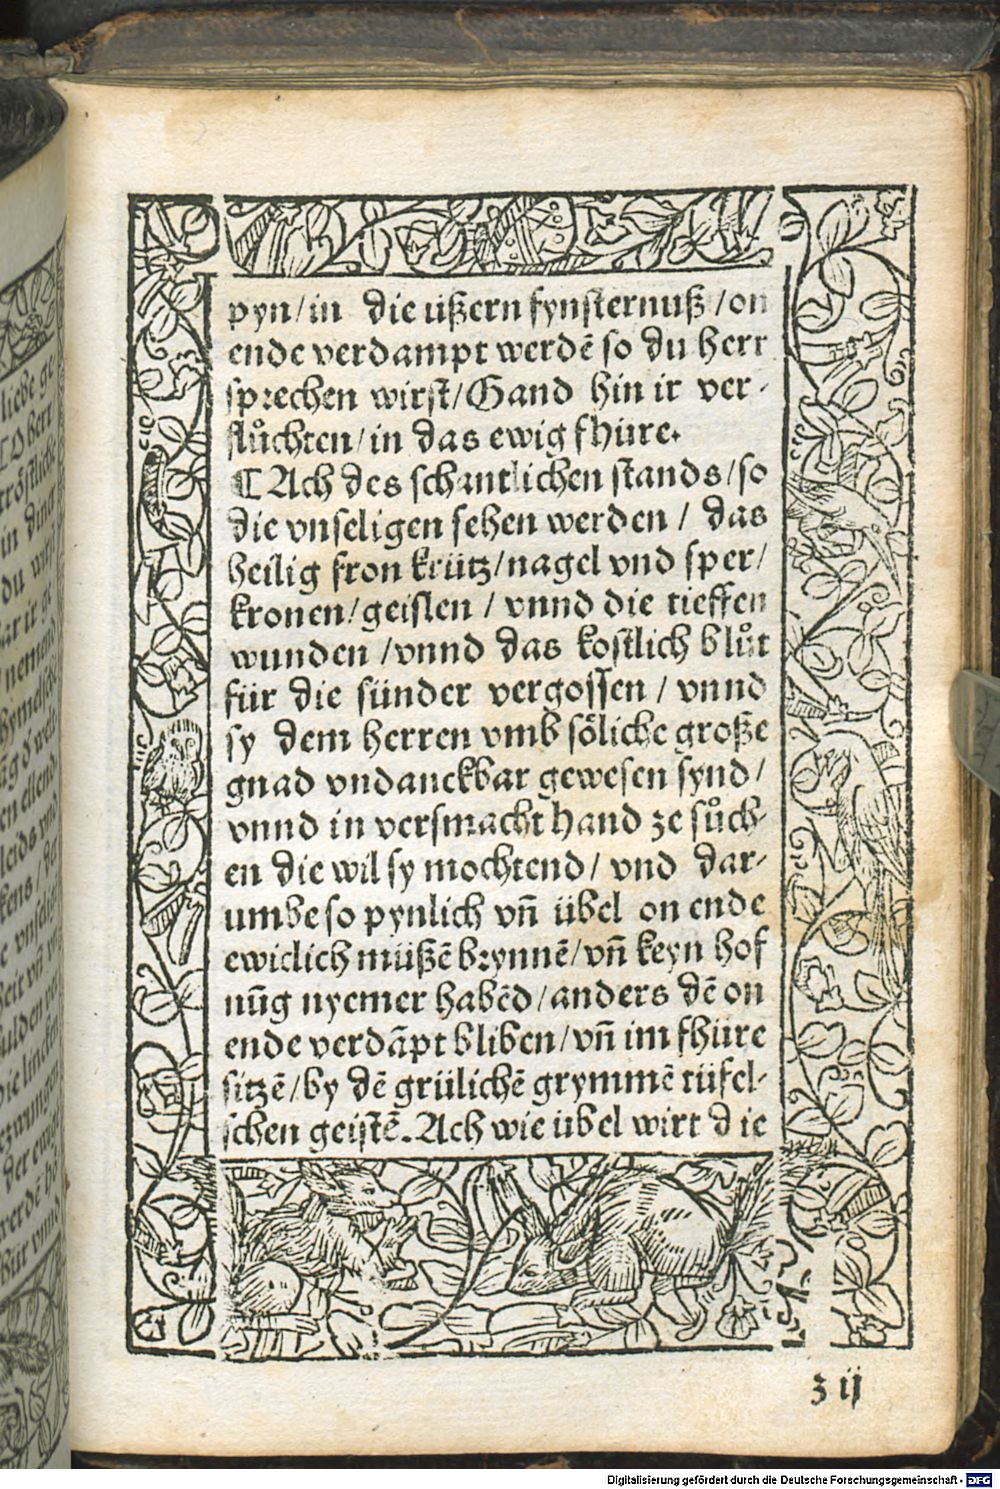 pyn/in die ußern fynsternuß/on
ende verdampt werdẽ so du herr
sprechen wirst/Gand hin ir ver-
flůchten/in das ewig fhüre.
¶ Ach des schantlichen stands/so
die vnseligen sehen werden / das
heilig fron krütz/nagel vnd sper/
kronen/geislen / vnnd die tieffen
wunden /vnnd das kostlich blůt
für die sünder vergossen / vnnd
sy dem herren vmb söliche große
gnad vndanckbar gewesen synd/
vnnd in versmacht hand ze sůch-
en die wil sy mochtend/ vnd dar-
umbe so pynlich vñ übel on ende
ewiclich müßẽ brynnẽ/vñ keyn hof
nũg nyemer habẽd/anders dẽ on
ende verdãpt bliben/vñ im fhüre
sitzẽ/by dẽ grülichẽ grymmẽ tüfel-
schen geistẽ. Ach wie übel wirt die
z ij
Digitalisierung gefördert durch die Deutsche Forschungsgemeinschaft - DFG